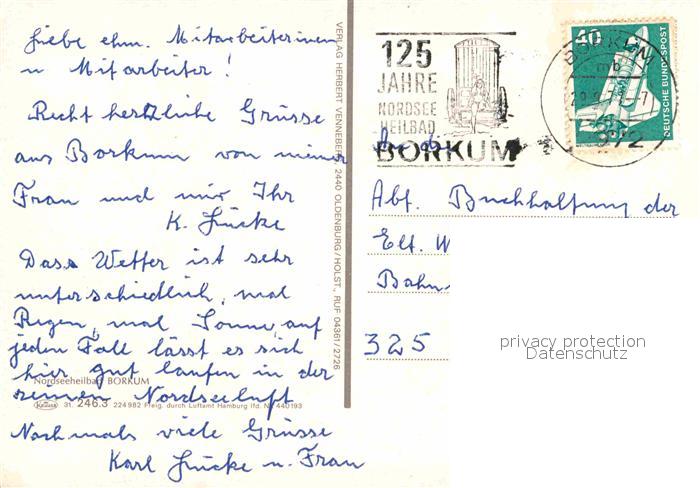 Liebe ehm. Mitarbeiterinnen
u Mitarbeiter!
Recht herzliche Grüsse
aus Borkum von meiner
Frau und mir Ihr
K. Lücke
Dass Wetter ist sehr
unterschiedlich, mal
Regen, mal Sonne, auf
jeden Fall lässt es sich
hier gut laufen in der
reinen Nordseeluft
Nochmals viele Grüsse
Karl Lücke u. Frau
Nordseeheilbad BORKUM
Krüger 31. 246.3 224 982 Freig. durch Luftamt Hamburg lfd. Nr. 440193
VERLAG HERBERT VENNEBERG, 2440 OLDENBURG/HOLST., RUF 04361/2726
125
JAHRE
NORDSEE
HEILBAD
BORKUM
BORKUM
mb
972
40
DEUTSCHE BUNDESPOST
An die
Abt. Buchhaltung der
Elt. W
Bahn
325
privacy protection
Datenschutz